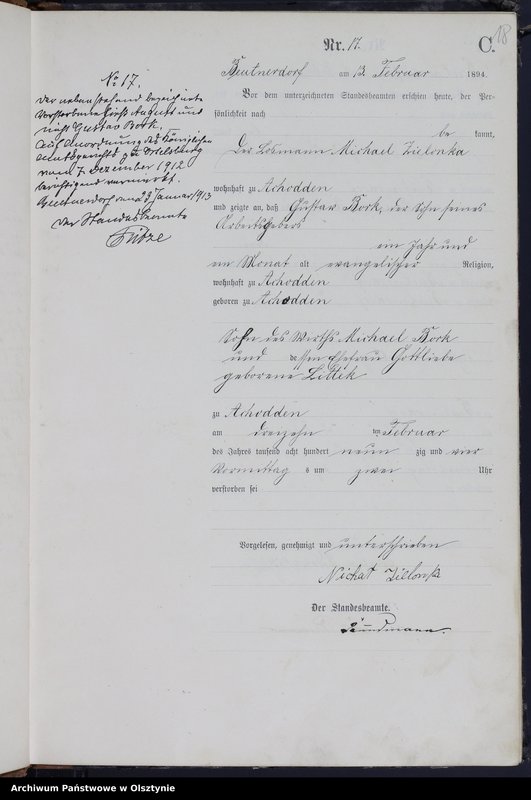 18
Nr. 17.
C.
Beutnerdorf am 13. Februar 1894.
Vor dem unterzeichneten Standesbeamten erschien heute, der Per-
sönlichkeit nach
be kannt,
Der Losmann Michael Zielonka
wohnhaft zu Achodden
und zeigte an, daß Gustav Bork, der Sohn seines
Arbeitsgebers
ein Jahr und
ein Monat alt evangelischer Religion,
wohnhaft zu Achodden
geboren zu Achodden
Sohn des Wirths Michael Bork
und dessen Ehefrau Gottliebe
geborene Littek
zu Achodden
am dreizehn ten Februar
des Jahres tausend acht hundert neun zig und vier
Vormittag s um zwei Uhr
verstorben sei
Vorgelesen, genehmigt und unterschrieben
Michael Zielonka
Der Standesbeamte.
No 17.
Der nebenstehend bezeichnete
Verstorbene hieß August und
nicht Gustav Bork.
Auf Anordnung des Königlichen
Amtsgerichts zu Ortelsburg
vom 7. Dezember 1912
berichtigend vermerkt.
Beutnerdorf, den 23 Januar 1913
Der Standesbeamte
Archiwum Państwowe w Olsztynie